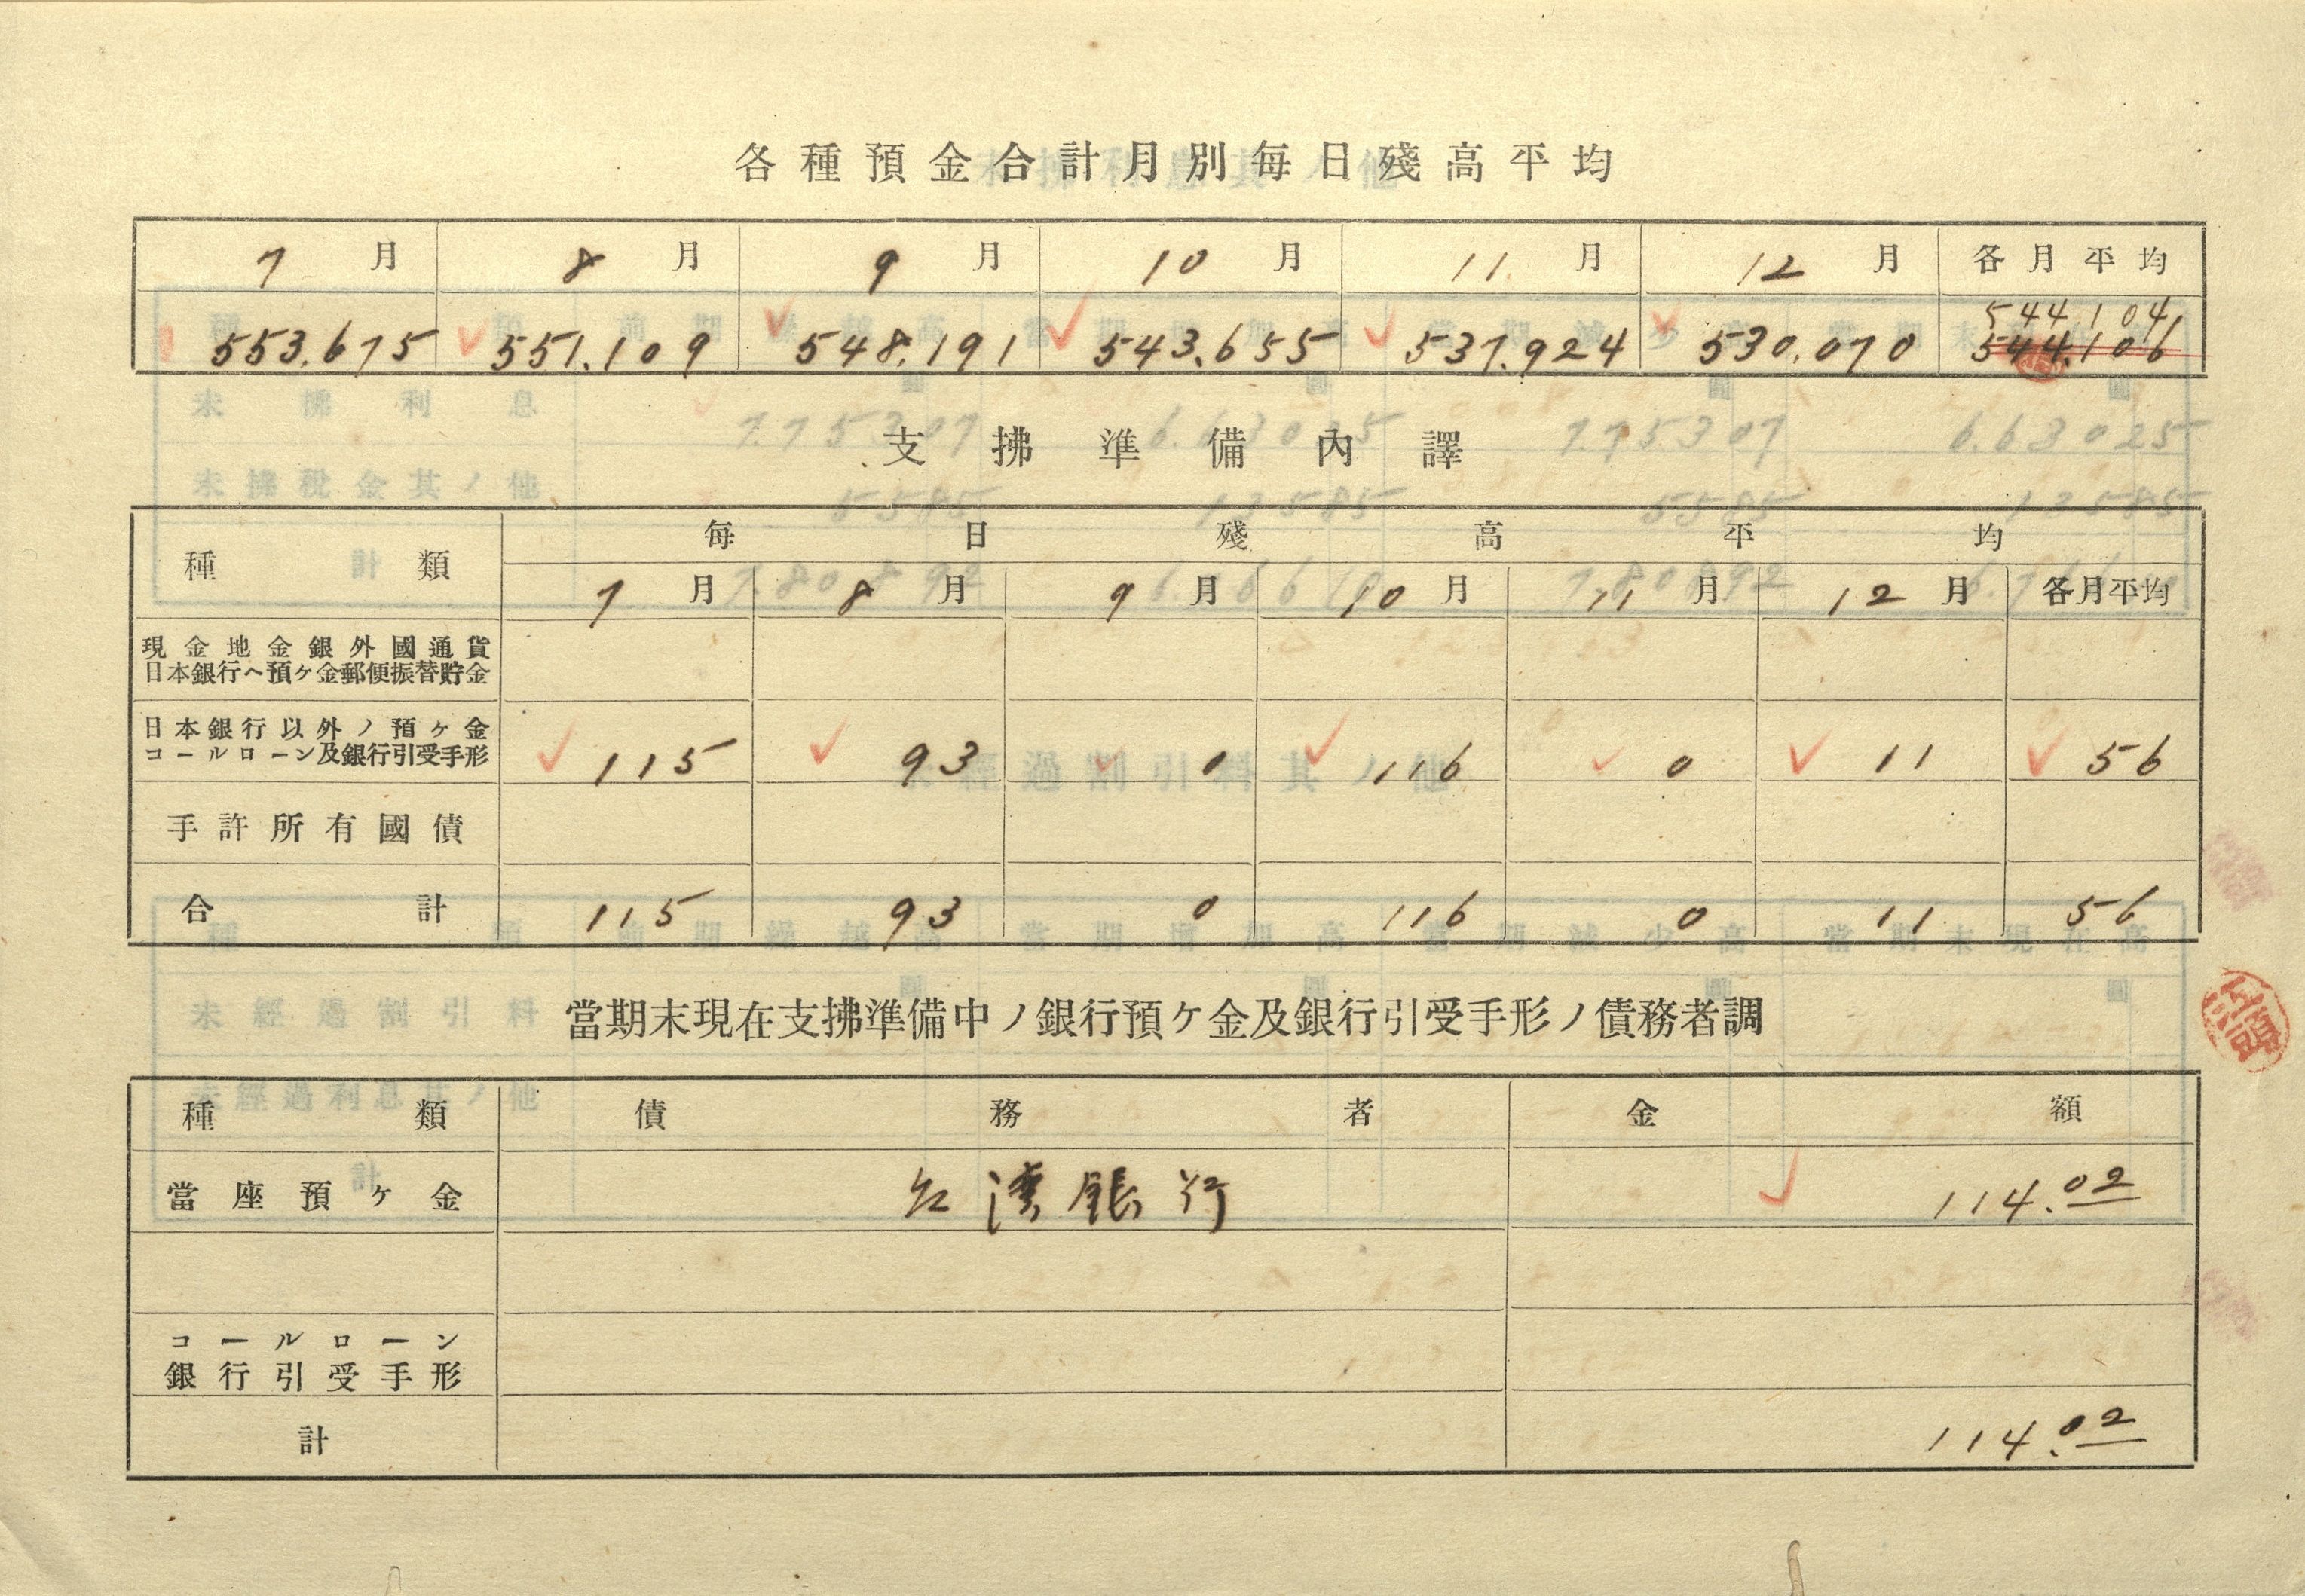 各種預金合計月別每日殘高平均
7月 8月 9月 10月 11月 12月 各月平均
544.104
553.675 551.109 548.191 543.655 537.924 530.070 544.106
支拂準備內譯
種類 每日殘高平均
7月 8月 9月 10月 11月 12月 各月平均
現金地金銀外國通貨
日本銀行ヘ預ヶ金郵便振替貯金
日本銀行以外ノ預ヶ金
コールローン及銀行引受手形 115 93 0 116 0 11 56
手許所有國債
合計 115 93 0 116 0 11 56
當期末現在支拂準備中ノ銀行預ケ金及銀行引受手形ノ債務者調
種類 債務者 金額
當座預ヶ金 台湾銀行 114.02
コールローン
銀行引受手形
計 114.02